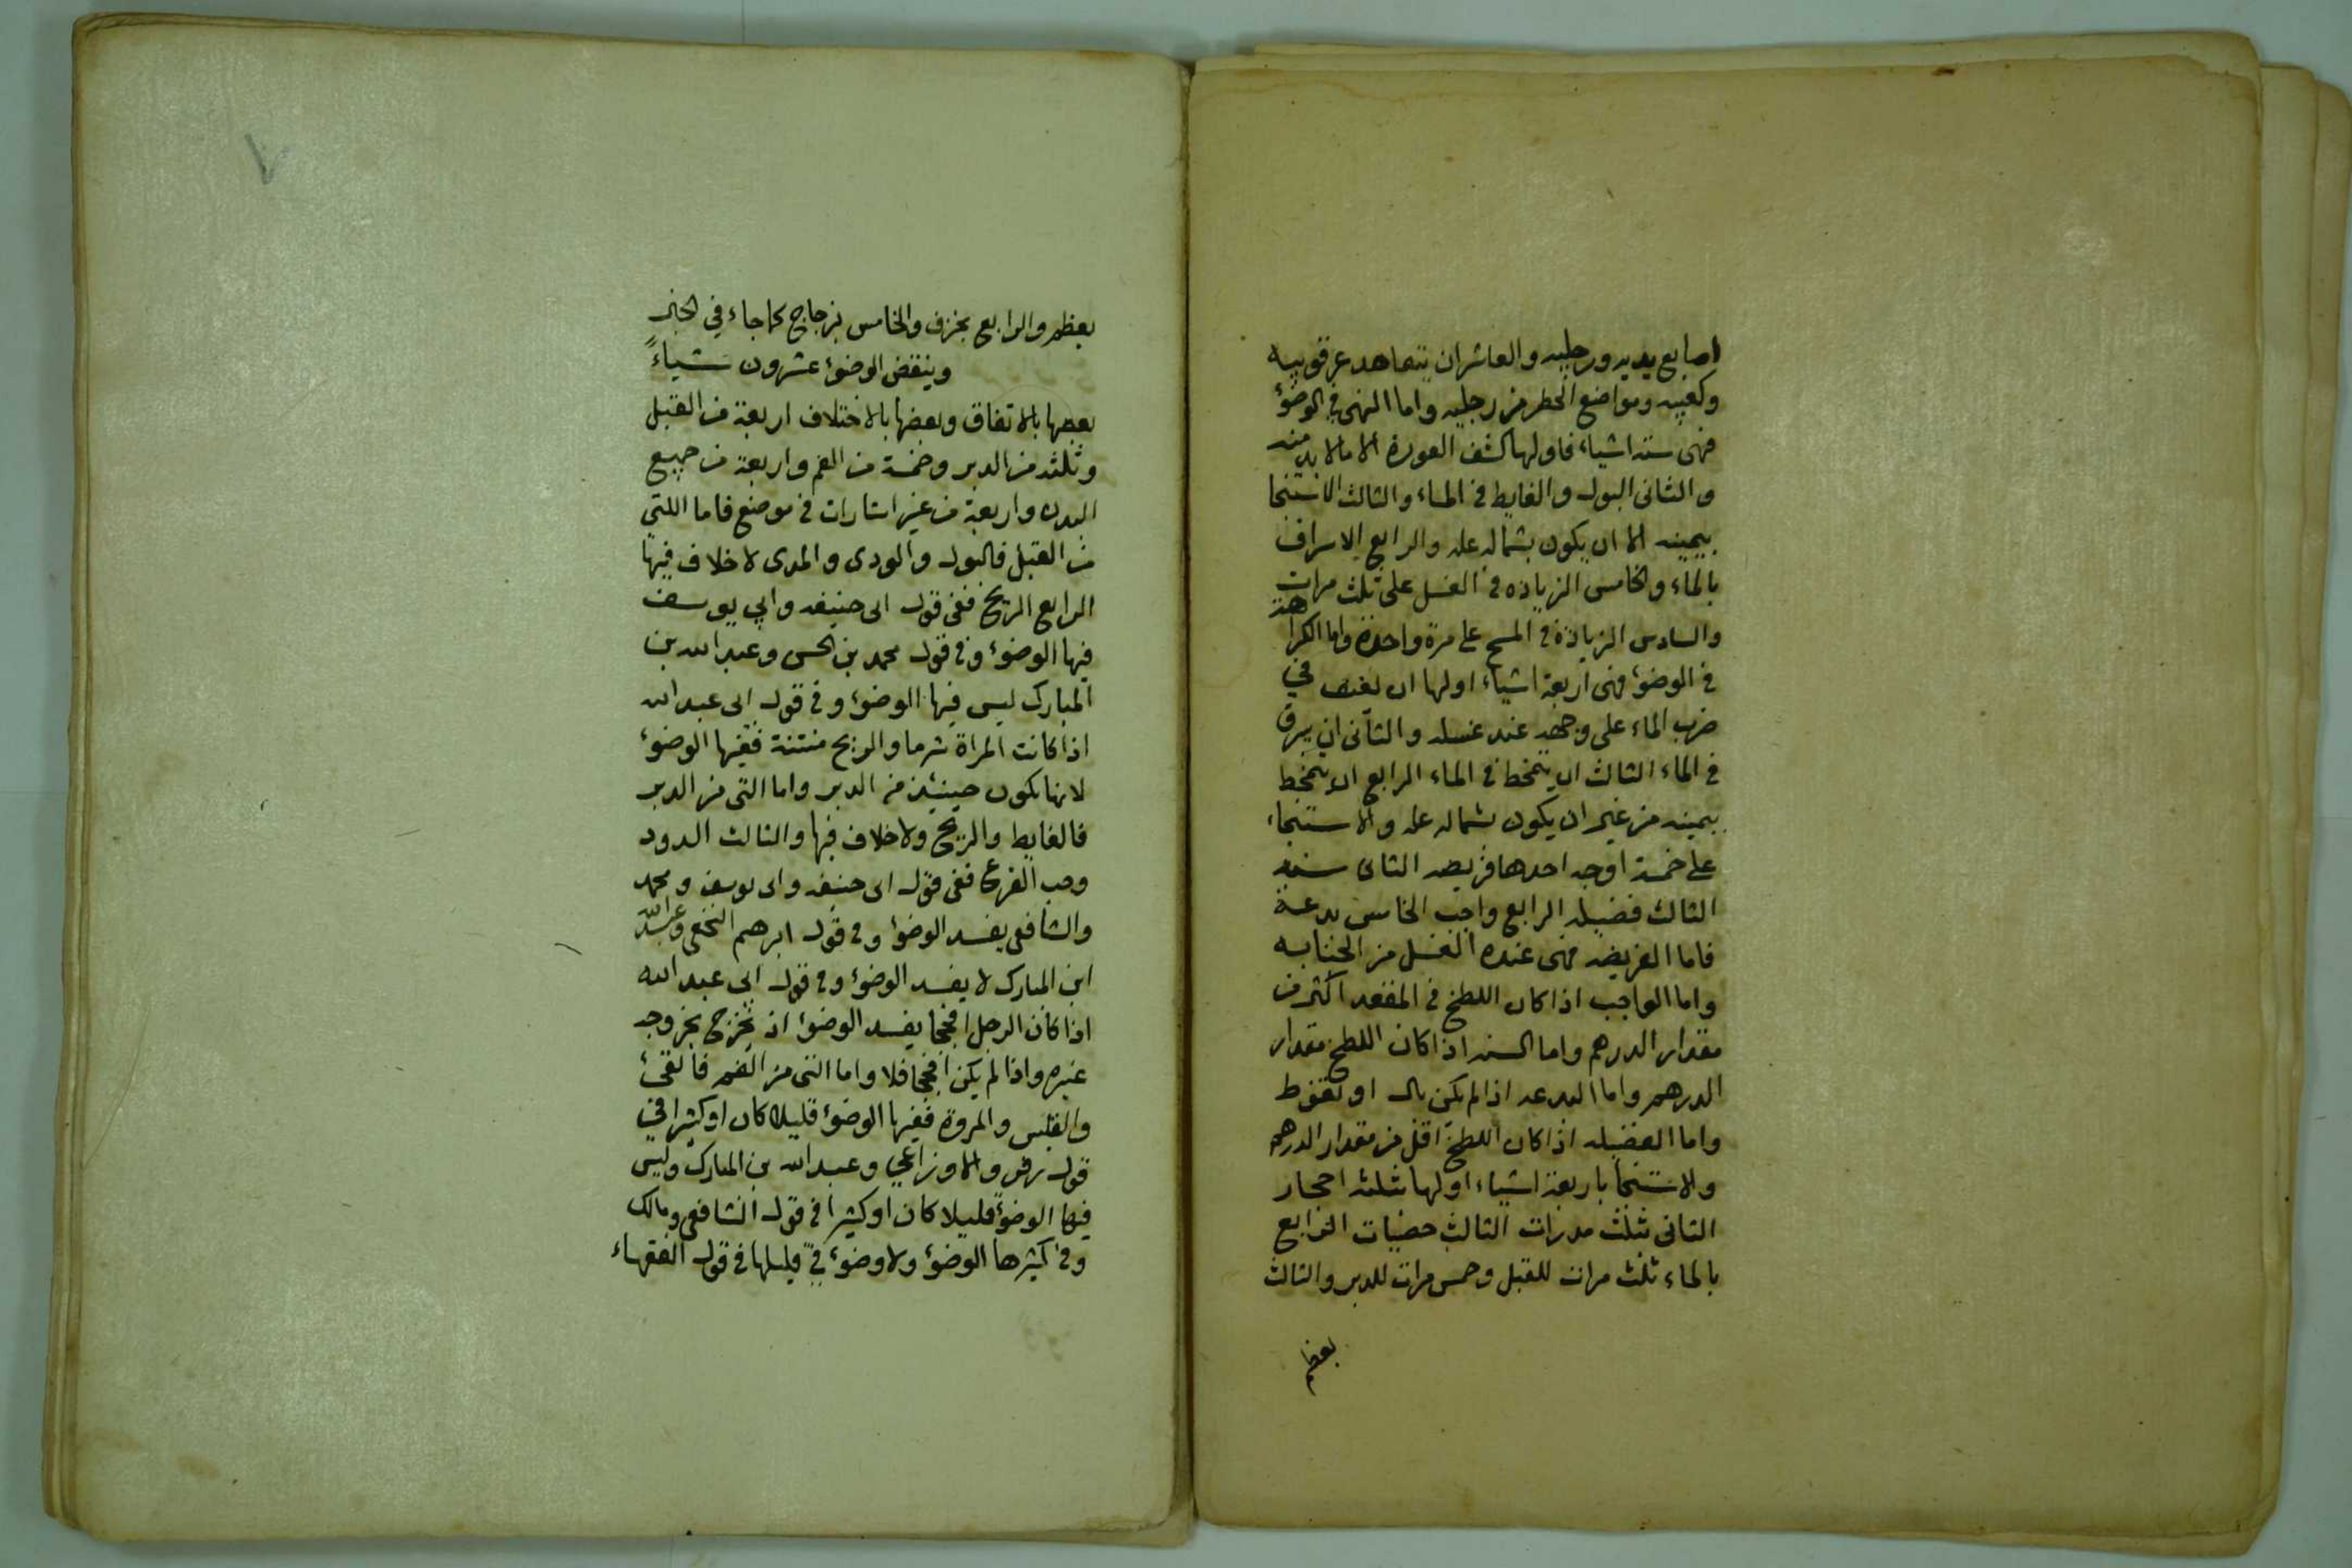 اصابع يديه ورجليه والعاشر ان يتعاهد عرقوبيه
وكعبيه ومواضع الخطر من رجليه واما النهى في الوضؤ
فهى ستة اشياء فاولها كشف العورة الا مالا بد منه
والثانى البول والغايط في الماء والثالث الاستنجا
بيمينه الا ان يكون بشماله عله والرابع الاسراف
بالماء والخامس الزيادة في الغسل على ثلث مرات
والسادس الزيادة في المسح على مرة واحدة واما الكراهة
في الوضؤ فهى اربعة اشياء اولها ان يعنف في
ضرب الماء على وجهه عند غسله والثانى ان يبزق
في الماء الثالث ان يتمخط في الماء الرابع ان يتمخط
بيمينه من غير ان يكون بشماله عله والاستنجاء
على خمسة اوجه احدها فريضه الثانى سنه
الثالث فضيله الرابع واجب الخامس بدعة
فاما الفريضه فهى عنده الغسل من الجنابه
واما الواجب اذا كان اللطخ في المقعد اكثر من
مقدار الدرهم واما السنه اذا كان اللطخ مقدار
الدرهم واما البدعه اذا لم يكن بال او تغوط
واما الفضيله اذا كان اللطخ اقل من مقدار الدرهم
والاستنجا باربعة اشياء اولها بثلثه احجار
الثانى بثلث مدرات الثالث حصيات الرابع
بالماء ثلث مرات للقبل وخمس مرات للدبر والثالث
بعظم
بعظم والرابع بخزف والخامس بزجاج كما جاء في الخبر
وينقض الوضؤ عشرون شياءً
بعضها بالاتفاق وبعضها بالاختلاف اربعة من القبل
وثلثه من الدبر وخمسة من الفم واربعة من جميع
البدن واربعة من غير اشارات في موضع فاما اللتي
من القبل فالبول والودى والمدى لا خلاف فيها
الرابع الريح ففى قول ابى حنيفه وابي يوسف
فيها الوضؤ وفي قول محمد بن الحسن وعبد الله بن
المبارك ليس فيها الوضؤ وفي قول ابى عبد الله
اذا كانت المراة شرما والريح منتنة ففيها الوضوء
لانها يكون حينئذ من الدبر واما التى من الدبر
فالغايط والريح ولا خلاف فيها والثالث الدود
وحب القرع ففى قول ابى حنيفه وابى يوسف ومحمد
والشافعى يفسد الوضؤ وفي قول ابرهيم النخعى وعبد الله
ابن المبارك لا يفسد الوضؤ وفي قول ابى عبد الله
اذا كان الرجل افحجا يفسد الوضؤ اذ يخرج بخروجه
غيره واذا لم يكن افحجا فلا واما التى من الفم فالقئ
والقلس والمروة ففيها الوضؤ قليلا كان او كثيرا في
قول زفر والاوزاعي وعبد الله بن المبارك وليس
فيها الوضؤ قليلا كان او كثيرا في قول الشافعى ومالك
وفي كثيرها الوضؤ ولا وضوء في قليلها في قول الفقهاء